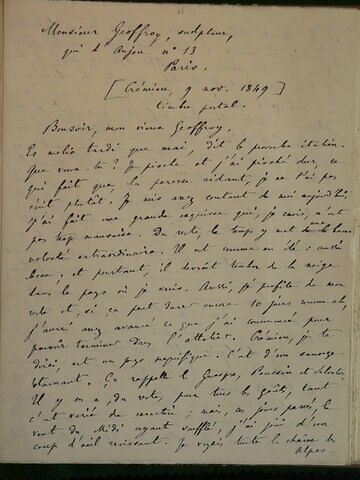 Monsieur Geoffroy, sculpteur,
qui d'Anjou n° 13
Paris.
[Crémieu, 9 nov. 1849]
timbre postal.
Bonsoir, mon vieux Geoffroy.
Es melio tardi que mai, dit le proverbe italien.
Que veux-tu? Je pioche et j'ai pioché dur, ce
qui fait que, la paresse aidant, je ne t'ai pas
écrit plutôt. Je suis assez content de moi aujourd'hui,
j'ai fait une grande esquisse qui, je crois, n'est
pas trop mauvaise. Du reste, le temps y met de la bonne
volonté extraordinaire. Il est comme en été: aussi
beau, et pourtant, il devrait tomber de la neige
dans le pays où je suis. Aussi, je profite de mon
reste et, si ça peut durer encore 10 jours comme ça,
j'aurai assez avancé ce que j'ai commencé pour
pouvoir terminer dans l'atelier. Crémieu, je te
dirai, est un pays magnifique. C'est d'un sauvage
étonnant. Ça rappelle le Guaspre, Poussin et Salvator.
Il y en a, du reste, pour tous les goûts, tant
c'est varié de caractère; mais, ces jours passés, le
vent du Midi ayant soufflé, j'ai joui d'un
coup d'œil ravissant. Je voyais toute la chaîne des
Alpes